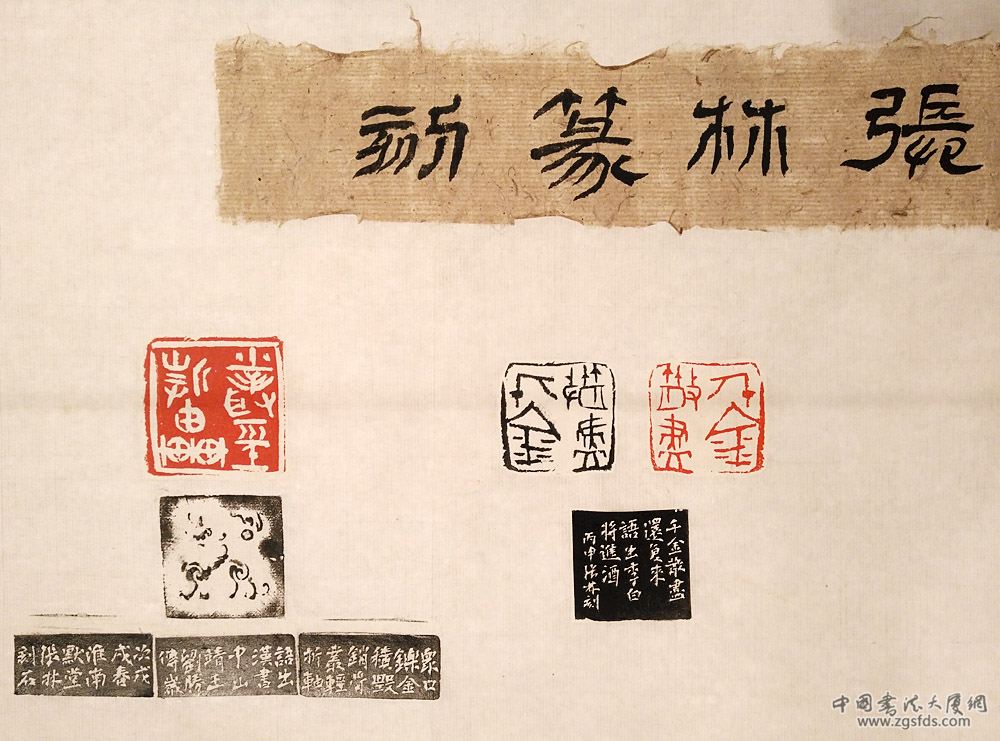 張林篆刻
千金散盡
千金散盡
還復來
語出李白
將進酒
丙申張林刻
叢輕折軸
眾口
鑠金
積毀
銷骨
叢輕
折軸
語出
漢書
中山
靖王
劉勝
傳歲
次戊
戌春
淮南
默堂
張林
刻石
中国书法大厦網
www.zgsfds.com